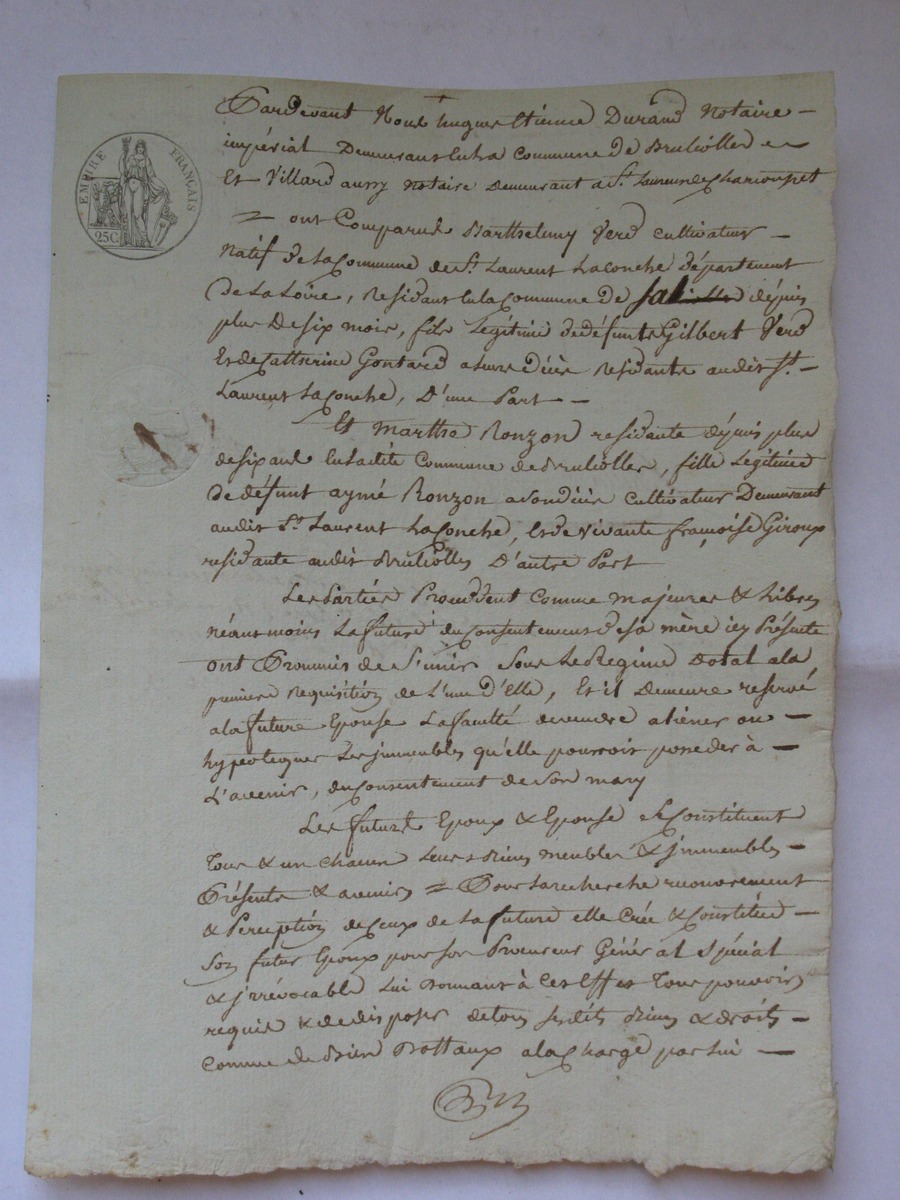 EMPIRE FRANÇAIS
25C
Pardevant Nous hugues Etienne Durand Notaire
impérial Demeurant En la Commune de Brulliolles
Et Villard aussy notaire demeurant a St. Laurent de Chamousset
= ont Comparus Barthelemy Verd cultivateur
Natif de la Commune de St. Laurent La Conche département
de La Loire, Residant En la Commune de depuis
plus De six mois, fils Legitime de défunts Gilbert Verd
Et de Catherine Gontard a Residante audit St.
Laurent La Conche, D'une Part
Et marthe Ronzon residante depuis plus
de six ans En Ladite Commune de Brulliolles, fille Legitime
de défunt aymé Ronzon cultivateur Demeurant
audit St. Laurent La Conche, Et de Vivante françoise Giroux
residante audit Brulliolles D'autre Part
Les Parties Procedent comme majeures & Libres
néanmoins La future du Consentement de sa mère icy Présente
ont Prommis de S'unir Sous Le Regime Dotal a la
premiere Requisition de L'une D'Elle, Et il Demeure reservé
a la future Epouse La faculté de vendre aliéner ou
hypotequer Les jmmeubles qu'elle pourroit posseder à
L'avenir, du Consentement de Son mary
Les futurs Epoux & Epouse se Constituent
Tous & un chacun Leurs Biens meubles & jmmeubles
Présents & avenirs = Pour La recherche recouvrement
& Perception de Ceux de La future elle Crée & Constitue
Son futur Epoux pour son Procureur Général Spécial
& jrrévocable Lui Donnant à Cet Effet Tous pouvoirs
requis & de disposer de tous Biens & droits
Comme de Bien Dottaux a la Charge par Lui